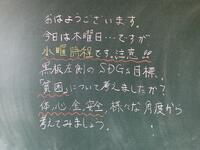 おはようございます。
今日は木曜日…ですが
水曜時程です。注意!!
黒板左側のSDGs目標、
「貧困」について考えましたか?
体、心、金、安全、様々な角度から
考えてみましょう。